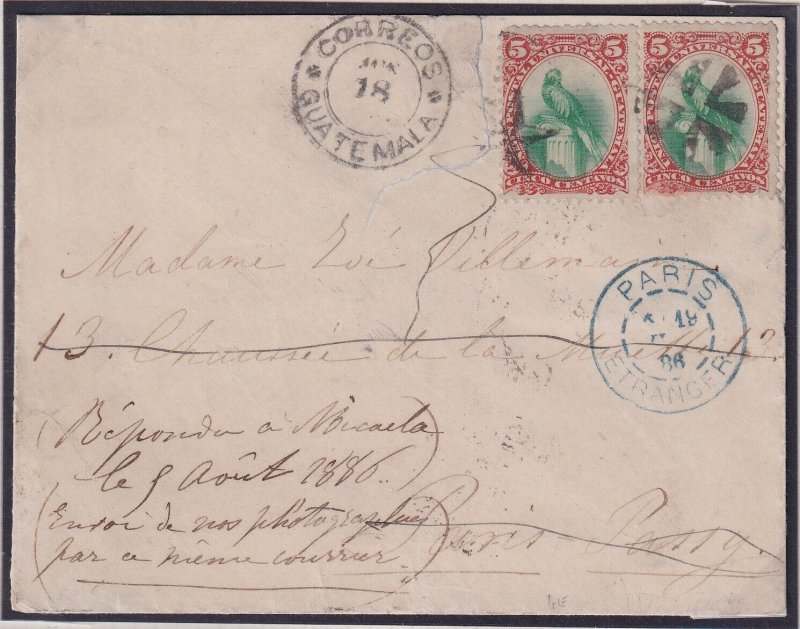 CORREOS
18
GUATEMALA
5 UNION POSTAL UNIVERSAL - GUATEMALA 5
CINCO CENTAVOS
5 UNION POSTAL UNIVERSAL - GUATEMALA 5
CINCO CENTAVOS
Madame Zoé Villemain
PARIS
19
86
ETRANGER
13. Chaussée de la Muette 13.
(Répondu à Micaela
le 9 Août 1886)
(Envoi de nos photographies
par ce même courrier.
Paris Passy.